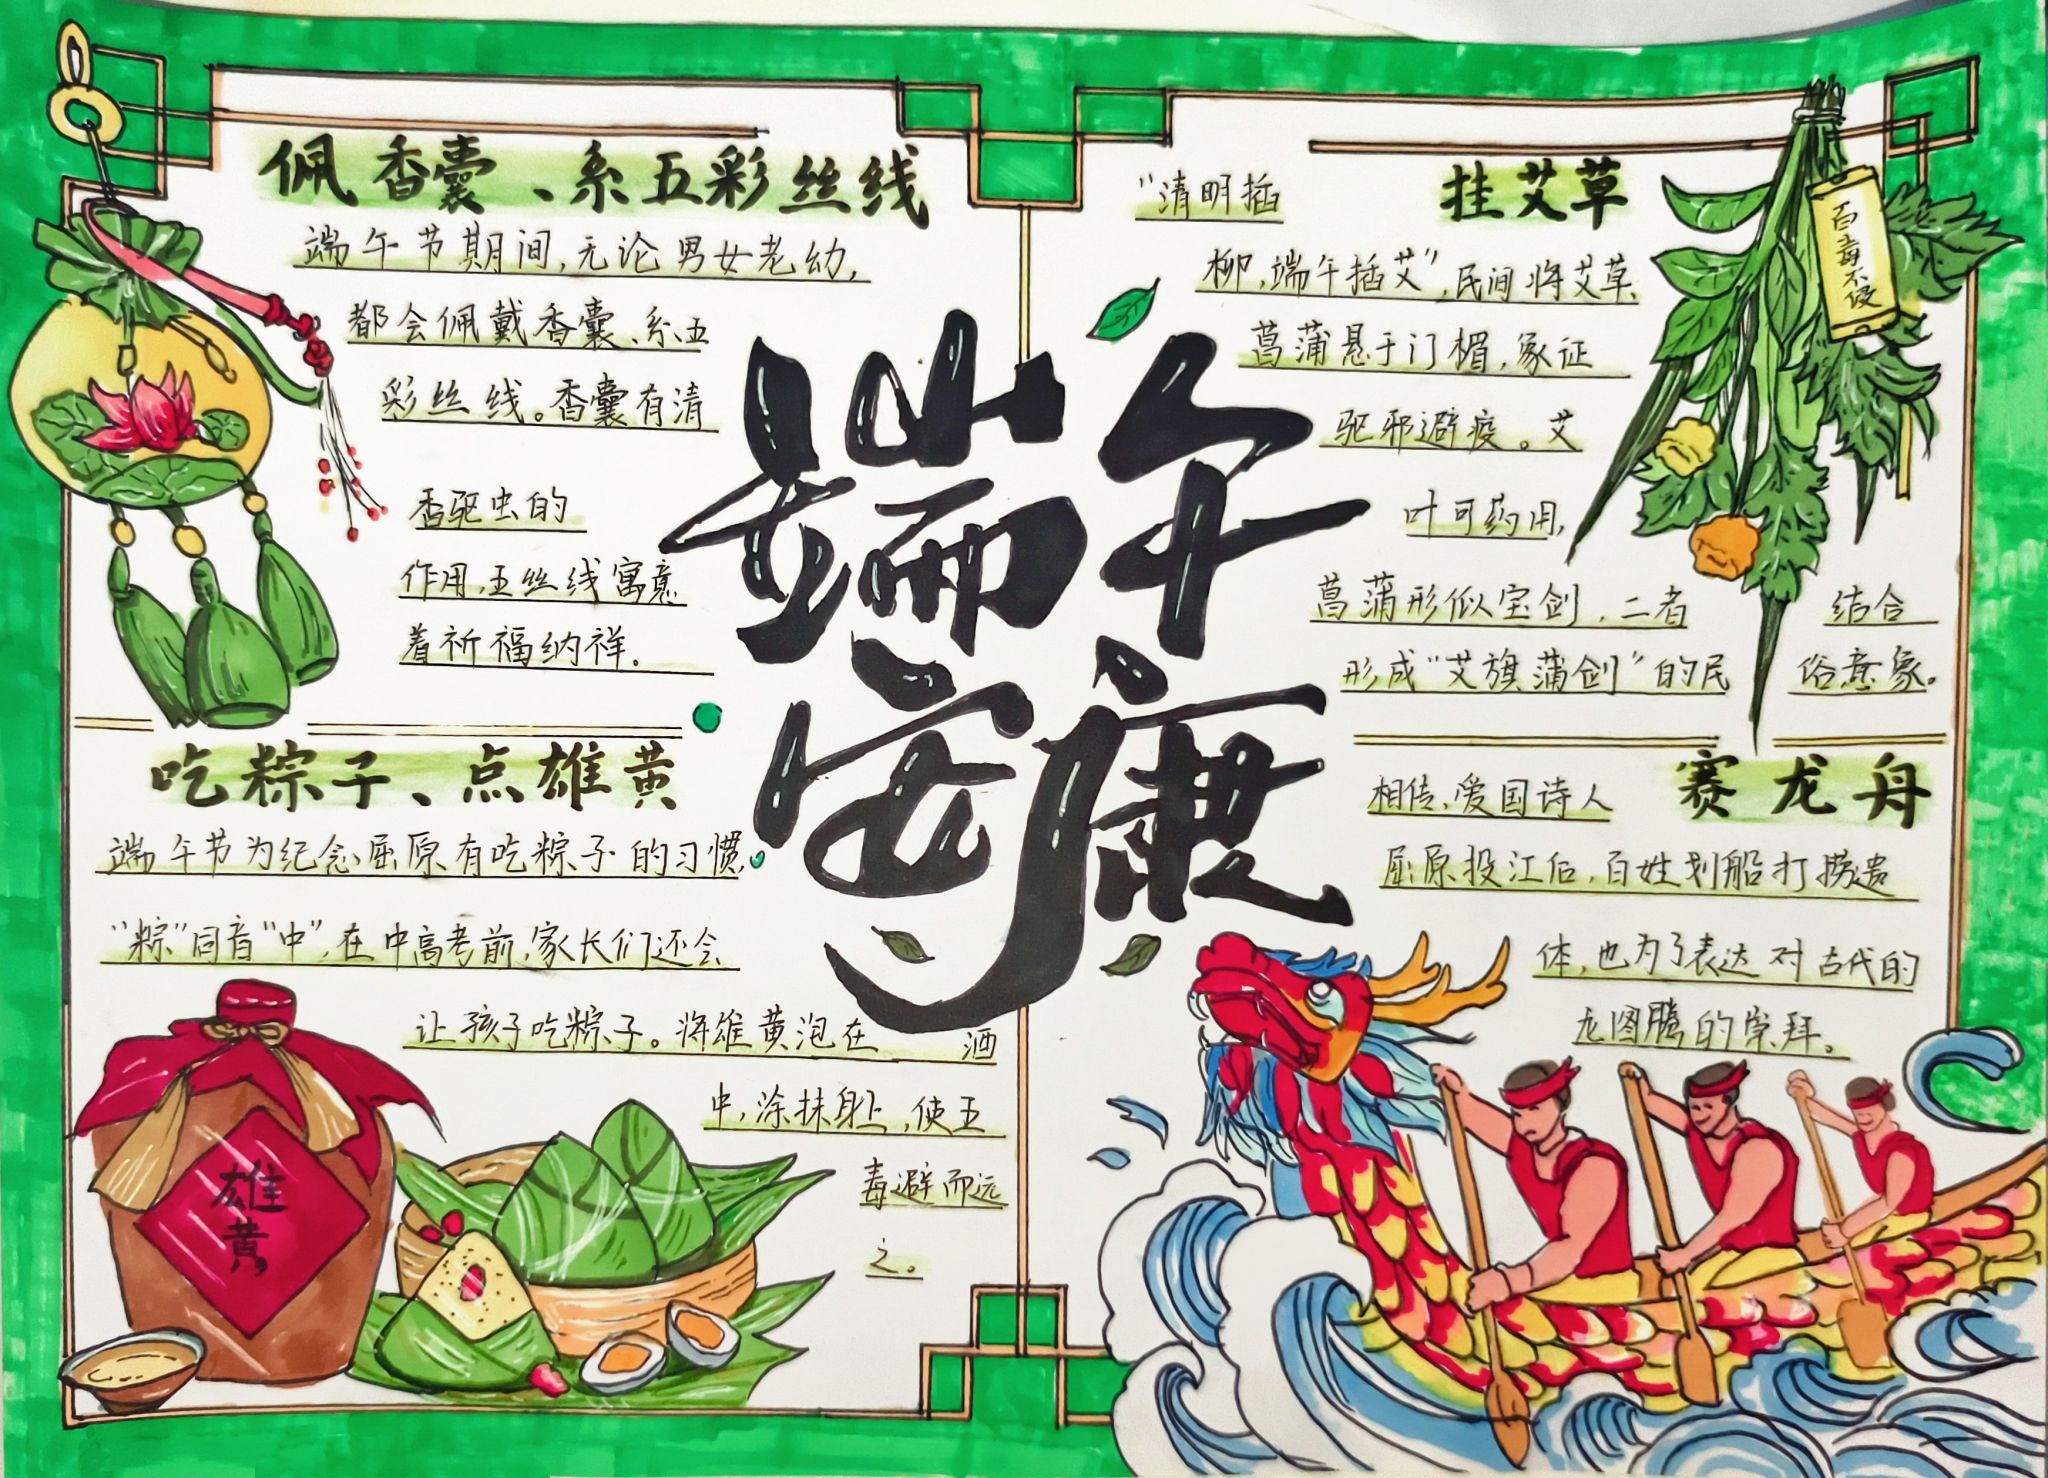 佩香囊、系五彩丝线
端午节期间,无论男女老幼,
都会佩戴香囊、系五
彩丝线。香囊有清
香驱虫的
作用,五丝线寓意
着祈福纳祥。
吃粽子、点雄黄
端午节为纪念屈原有吃粽子的习惯,
"粽"同音"中",在中高考前,家长们还会
让孩子吃粽子。将雄黄泡在酒
中,涂抹身上,使五
毒避而远
之。
雄
黄
端午
安康
挂艾草
"清明插
柳,端午插艾",民间将艾草、
菖蒲悬于门楣,象证
驱邪避疫。艾
叶可药用,
菖蒲形似宝剑,二者结合
形成"艾旗蒲剑"的民俗意象。
百毒不侵
赛龙舟
相传,爱国诗人
屈原投江后,百姓划船打捞遗
体,也为了表达对古代的
龙图腾的崇拜。